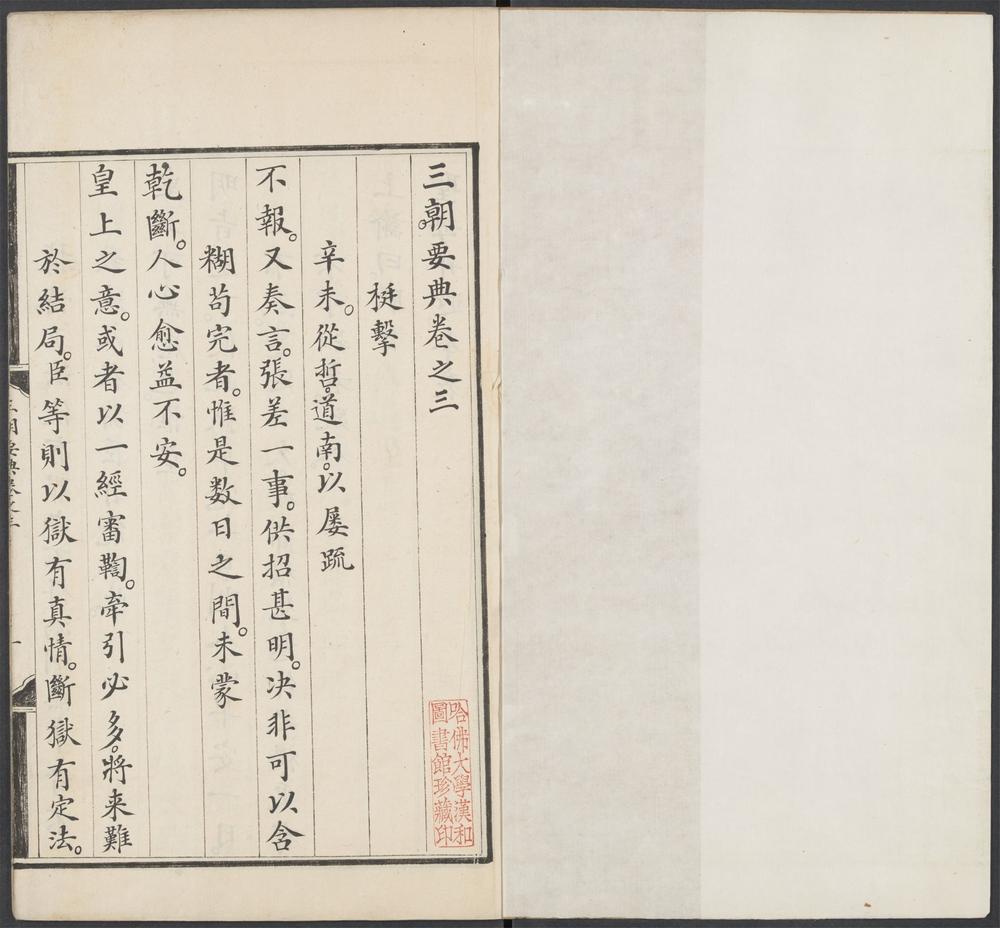 三朝。要典卷之三
梃擊
辛未。從哲。道南。以屡疏
不報。又奏言。張差一事。供招甚明。决非可以含
糊苟完者。惟是数日之間。未蒙
乾斷。人心愈益不安。
皇上之意。或者以一經審鞫。牽引必多。將来難
於結局。臣等則以獄有真情。斷獄有定法。
哈佛大學漢和
圖書館珍藏印